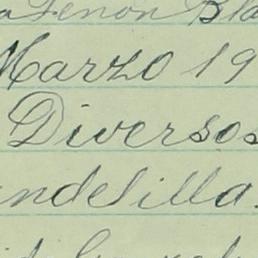 aLenon Bla
Marzo 19
Diversos
ndelilla.